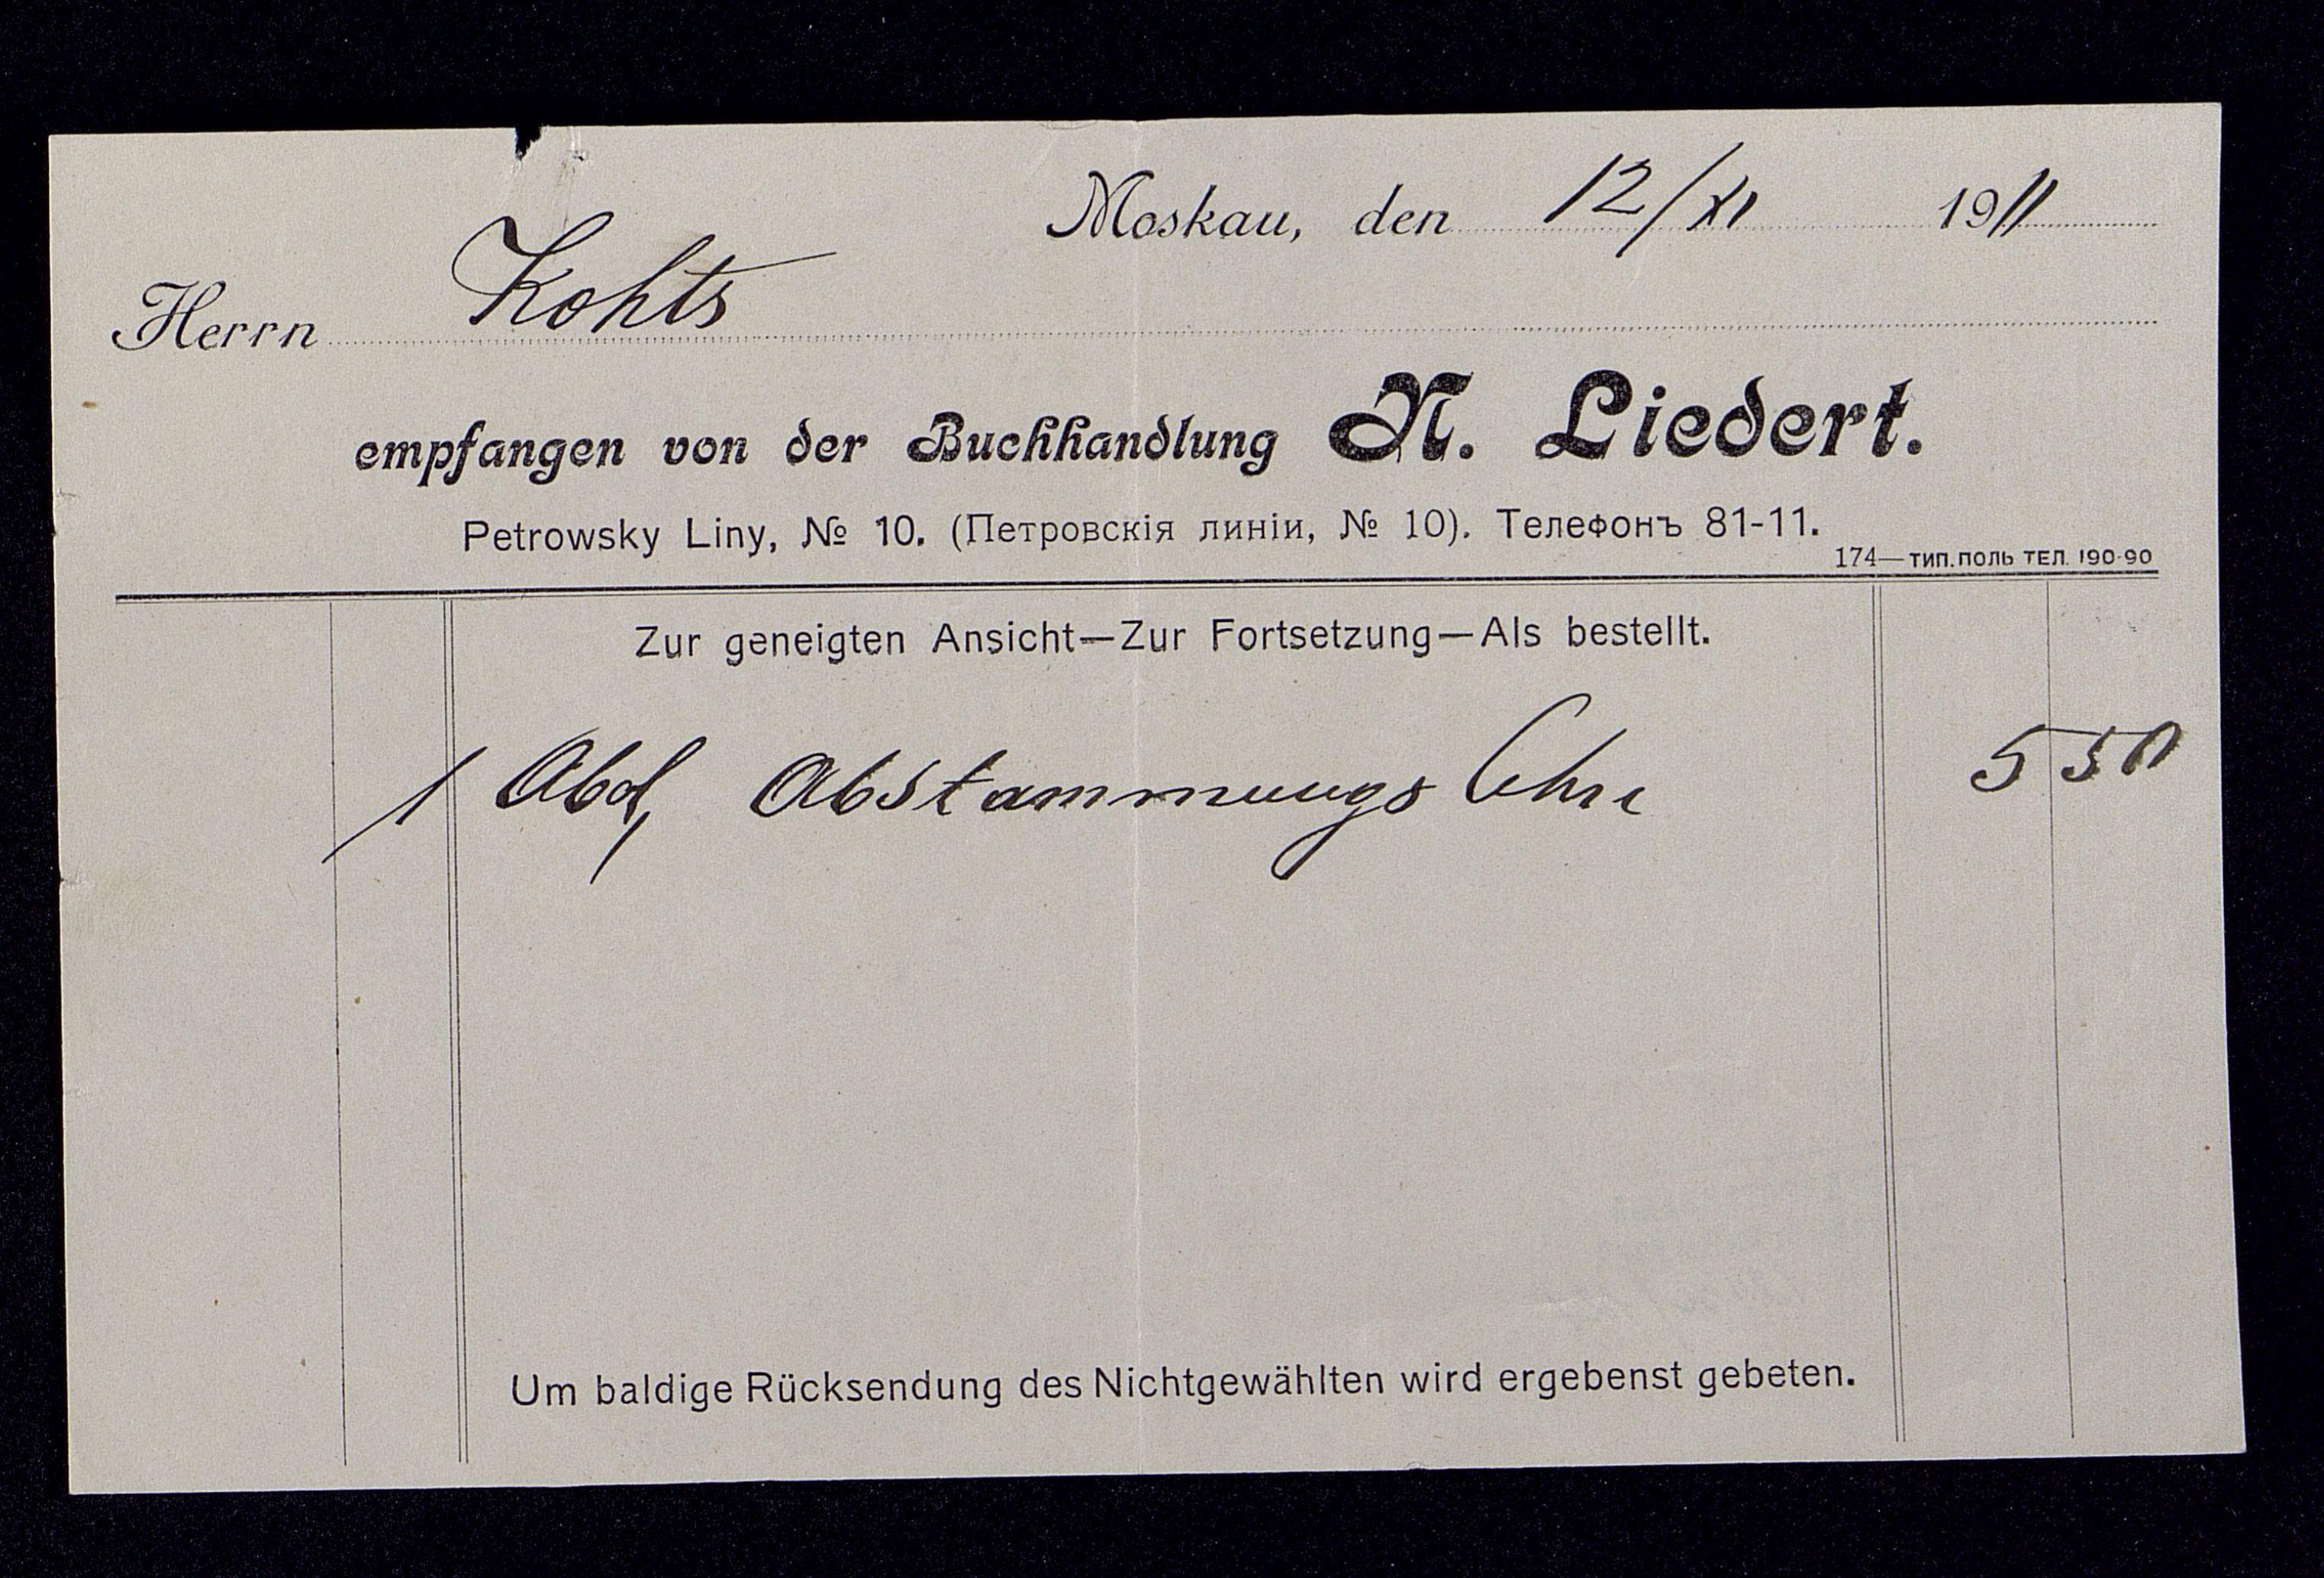 Moskau, den 12/XI 1911
Herrn Kohts
empfangen von der Buchhandlung N. Liedert.
Petrowsky Liny, № 10. (Петровскія линіи, № 10). Телефонъ 81-11.
174—ТИП. ПОЛЬ ТЕЛ. 190-90
Zur geneigten Ansicht—Zur Fortsetzung—Als bestellt.
1 Abel, Abstammungslehre 5 50
Um baldige Rücksendung des Nichtgewählten wird ergebenst gebeten.